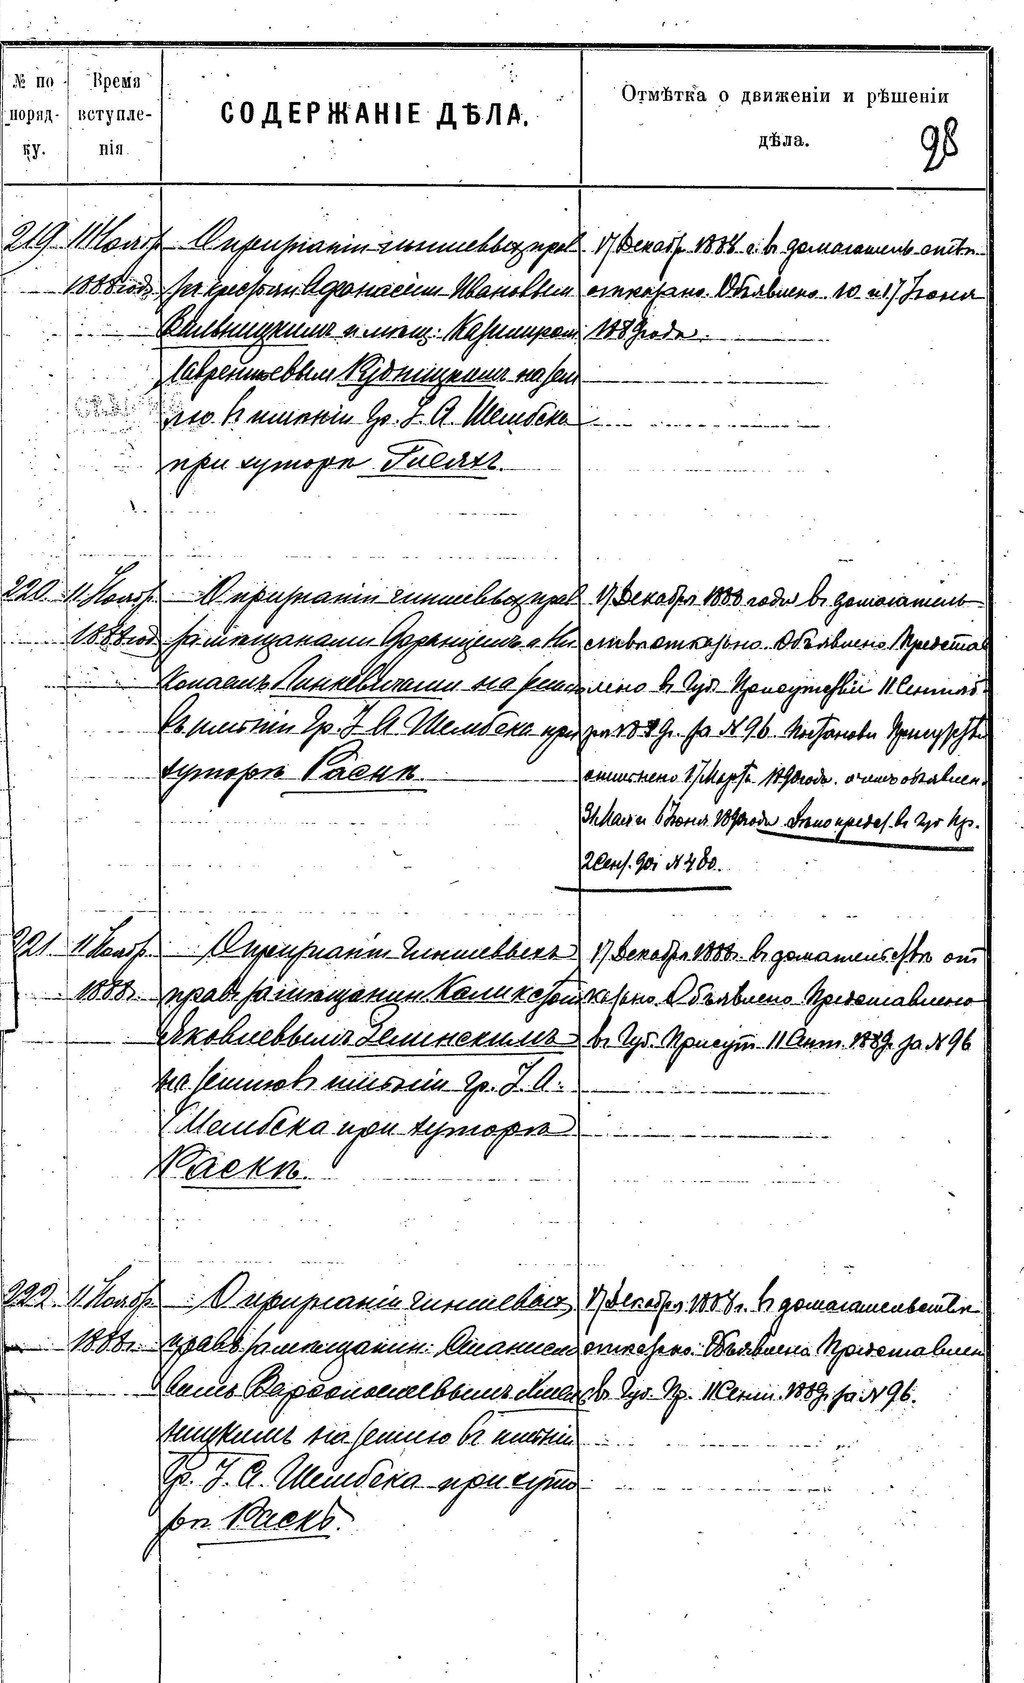 № по
поряд-
ку.
Время
вступле-
нія
СОДЕРЖАНІЕ ДѢЛА.
Отмѣтка о движеніи и рѣшеніи
дѣла.
98
219
11 Ноябр
1888 год
О признаніи чиншевых прав
за крестьян Афанасіем Ивановым
и мещ. Казимиром
Лаврентьевым на зем
лю в имѣніи Гр. І. А. Шембека
при хуторѣ
17 Декабр 1888 г. в домогательств
отказано. Объявлено 10 и 17 Іюня
1889 года.
220
11 Ноябр.
1888 год
О признаніи чиншевых прав
за мещанами и Ни
колаемъ Линкевичами на земл
в имѣніи Гр. І. А. Шембека при
хуторѣ Раскѣ
17 Декабря 1888 года в домогатель
ствѣ отказано. Объявлено Предста
лено в Губ. Присутствіе 11 Сентяб
ря 1889 г. за № 96. Постанов. Присутств
отменено 17 Марта 1890 года. о чем объявлен.
31 Мая и 6 Іюня 1890 года. Дело предст. в Губ Пр.
2 Сент. 90 г. № 480.
221
11 Ноябр.
1888 г.
О признаніи чиншевыхъ
прав за мещанин Каликстом
Яковлевымъ Зелинскимъ
на землю в имѣніи Гр. І. А.
Шембека при хуторѣ
Раскѣ.
17 Декабря 1888 г. в домогательствѣ от
казано. Объявлено Представлено
в Губ. Присут 11 Сент. 1889 г. за № 96
222
11 Ноябр.
1888 г.
О признаніи чиншевых
правъ за мещанин. Станисла
вомъ Варфоломеевымъ
на землю в имѣніи
Гр. І. А. Шембека при хуто
рѣ Раскѣ.
17 Декабря 1888 г. в домогательствѣ
отказано. Объявлено Представлен
в Губ. Пр. 11 Сент. 1889 г. за № 96.